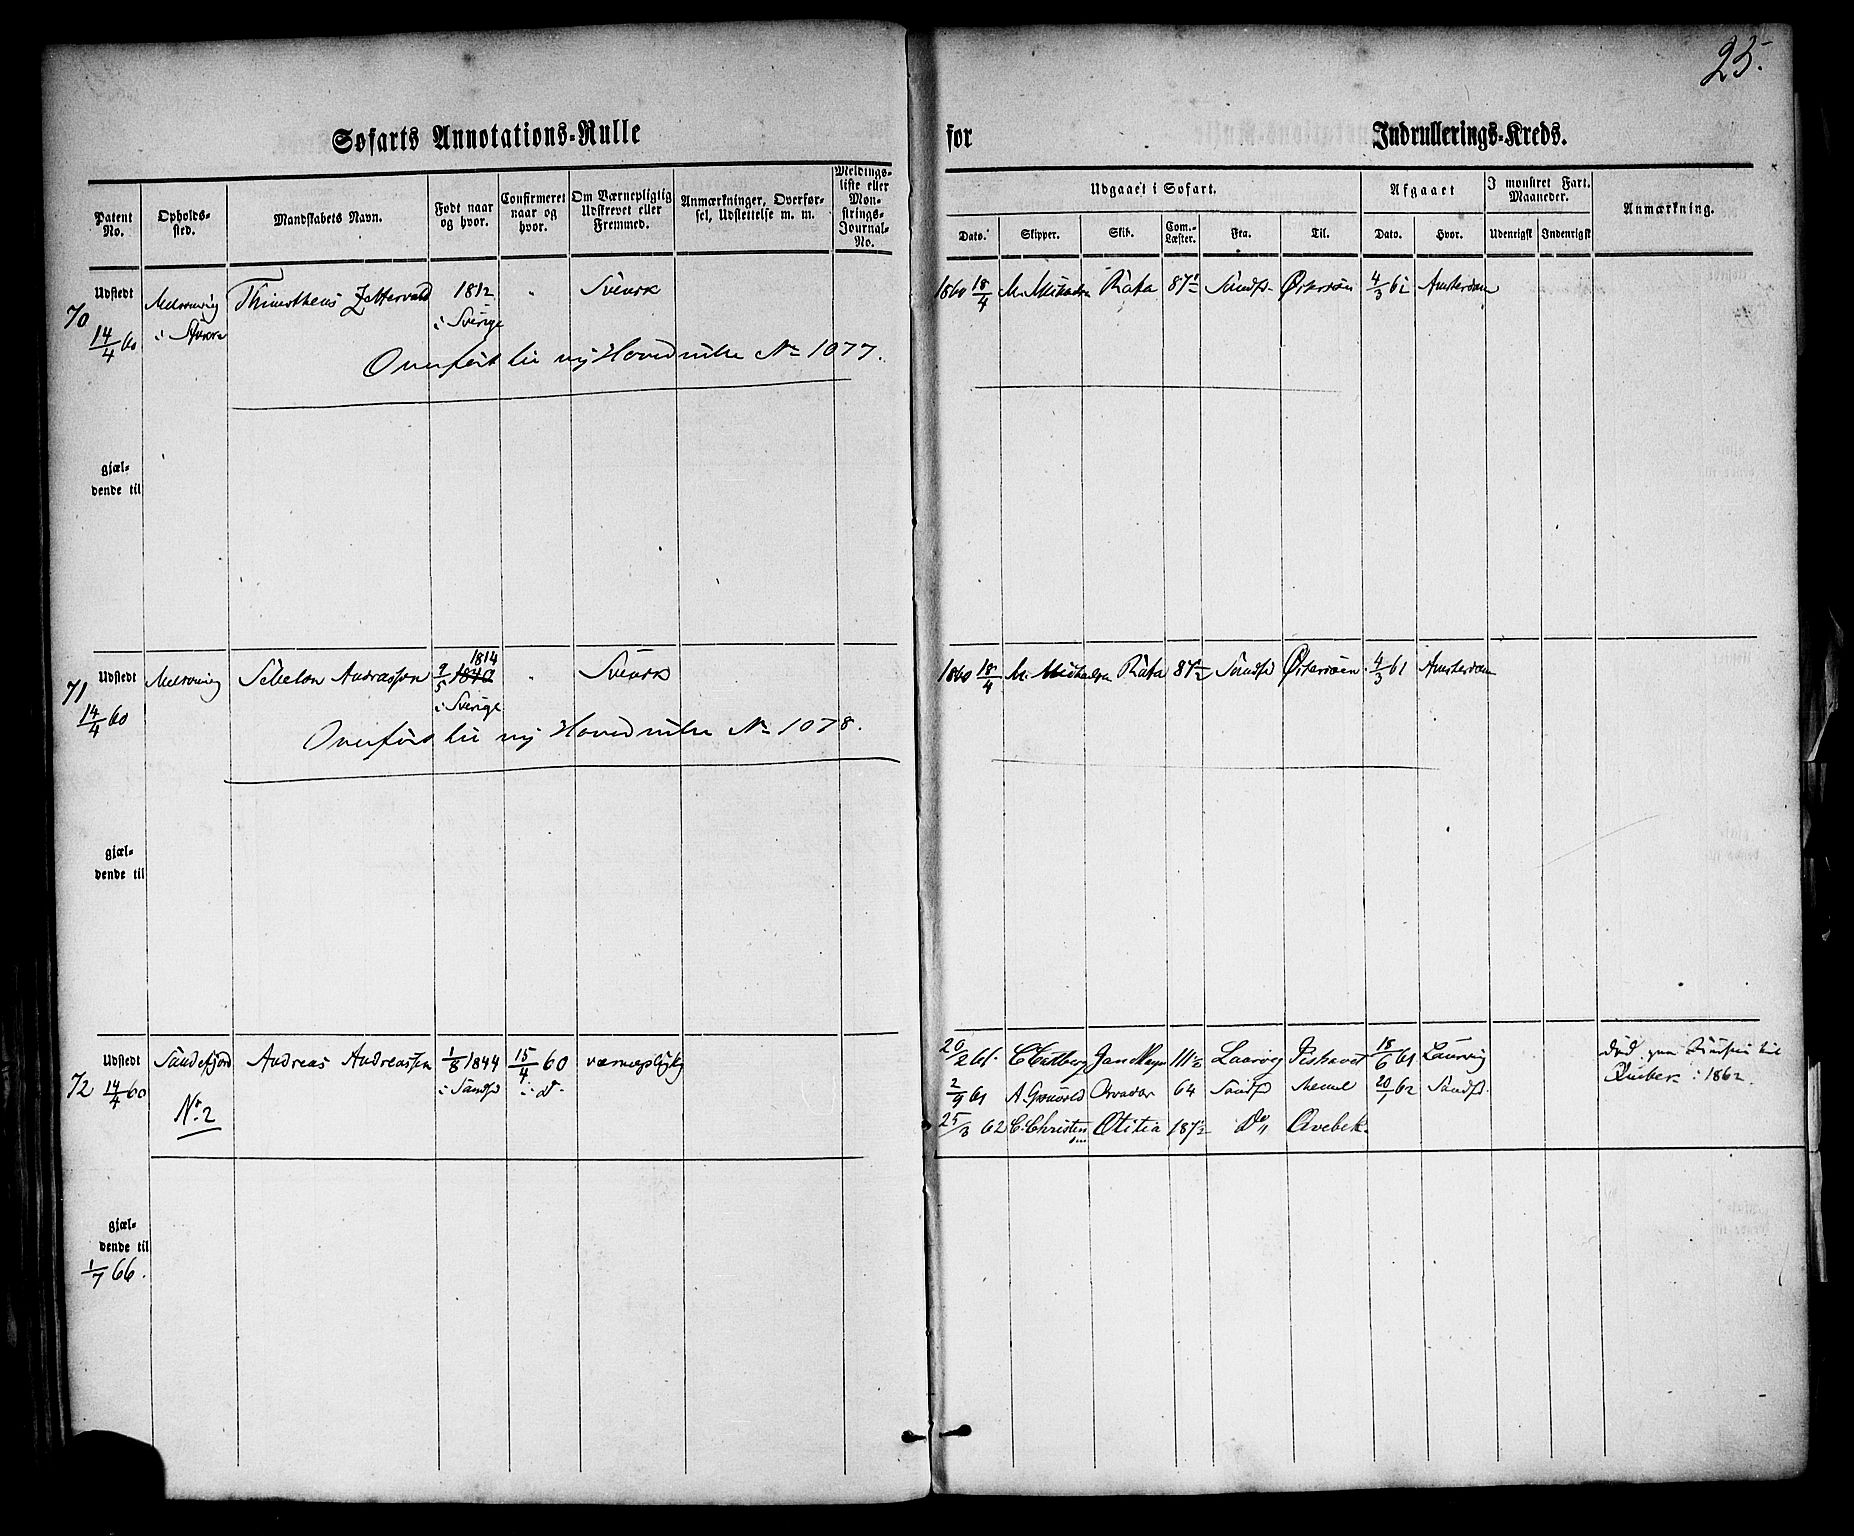 25.
Søfarts Annotations-Rulle
for
Indrullerings-Kreds.
Patent No.
Opholds-sted.
Mandskabets Navn.
Født naar og hvor.
Confirmeret naar og hvor.
Om Værnepligtig Udskrevet eller Fremmed.
Anmærkninger, Overførsel, Udslettelse m. m.
Meldings-liste eller Mon-strings-Journal-No.
Udgaaet i Søfart.
Afgaaet
I mønstret Fart. Maaneder.
Anmærkning.
Dato.
Skipper.
Skib.
Com.-Læster.
Fra.
Til.
Dato.
Hvor.
Udenrigsk
Indenrigsk
70
Udstedt
14/4 60
i
Thimotheus Zettervald
1812
i Sverige
"
Svensk
1860 18/4
M.
Råta
87½
Sandfd.
Østersøen
4/3 61
Amsterdam
Overført til ny Hovedrulle No 1077.
gjæl-
dende til
71
Udstedt
14/4 60
Andrasson
1814
9/5 1840
i Sverige
"
Svensk
1860 18/4
M.
Råta
87½
Sandfd
Østersøen
4/3 61
Amsterdam
Overført til ny Hovedrulle No 1078.
gjæl-
dende til
72
Udstedt
14/4 60
Sandefjord
Andreas Andreassen
1/8 1844
i Sandfd
15/4 60
i do
værnepligtig
20/2 61.
Jan Mayn
111½
Laurvig
18/6 61
Laurvig
død paa Reisen til
Qvebec i 1862.
2/9 61
A. Grønvold
64
Sandfd
Memel
20/1 62
Sandfd.
No. 2
25/3 62
C. Christensen
Otitia
187½
Do
Qvebek.
gjæl-
dende til
1/7 66.